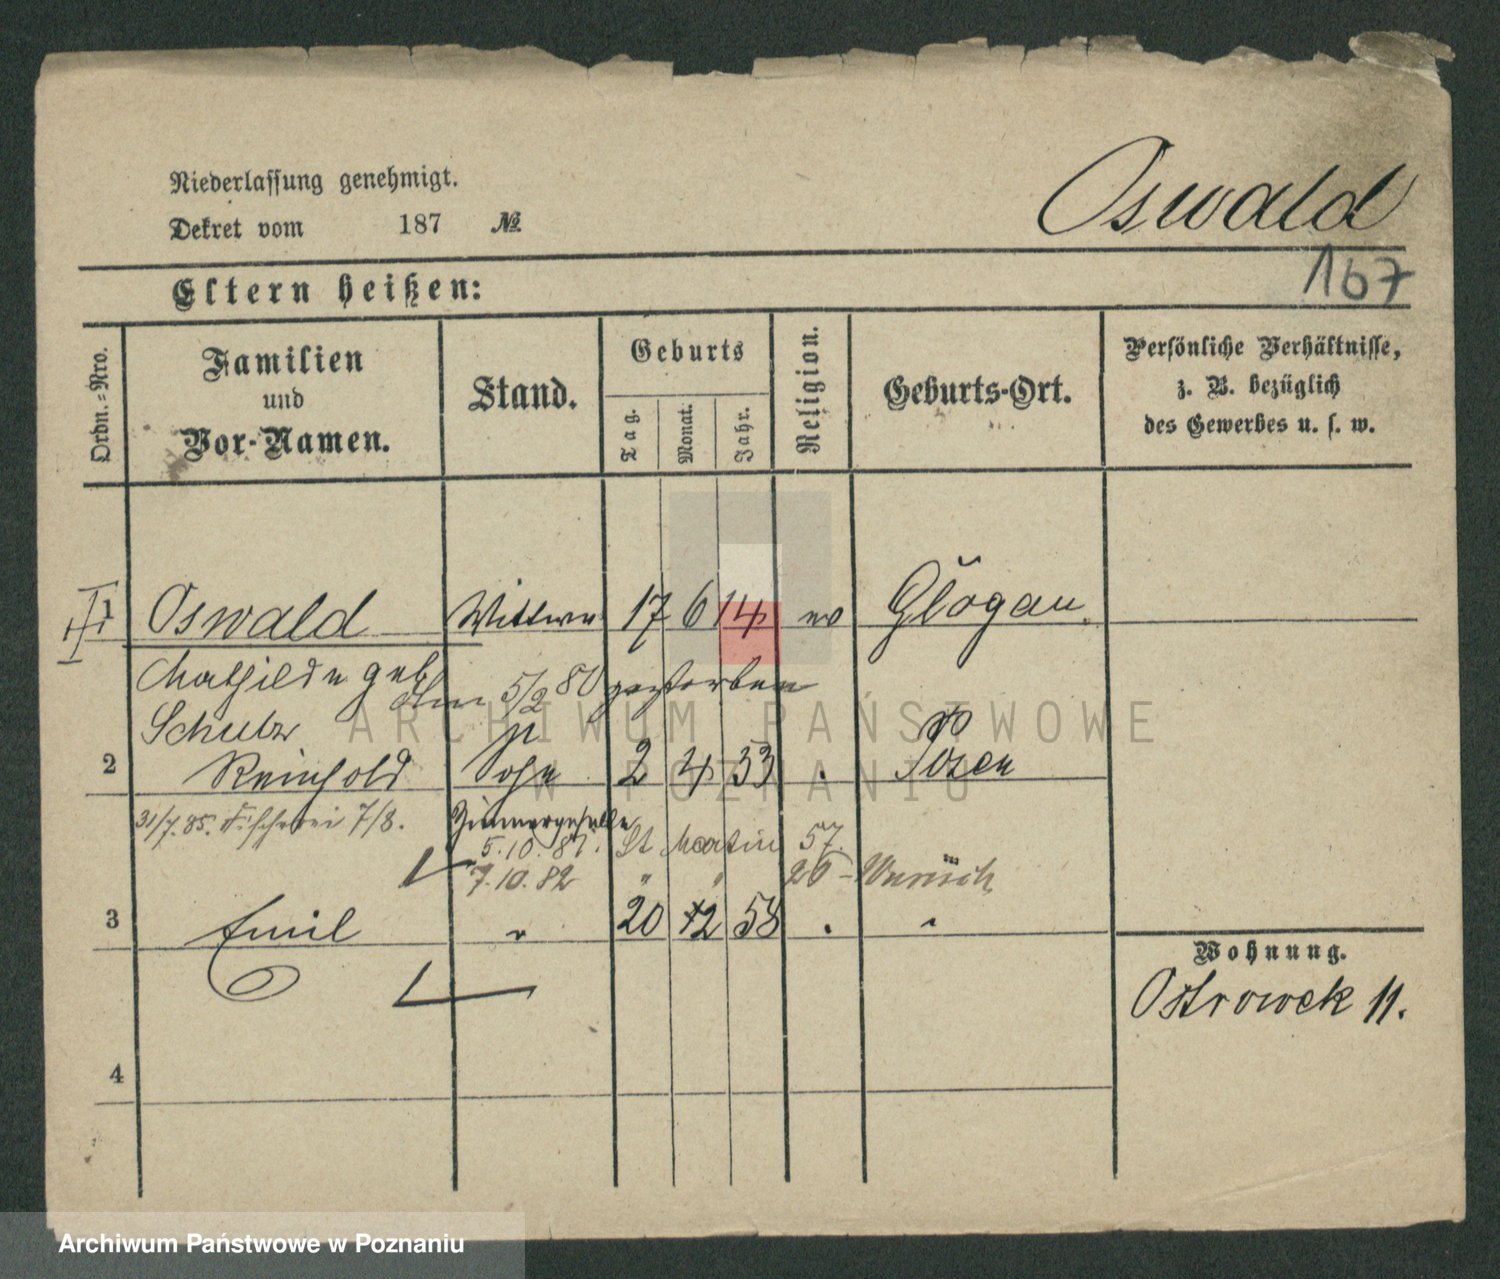 Niederlassung genehmigt.
Dekret vom 187 №
Oswald
167
Eltern heißen:
Ordn.-Nro.
Familien
und
Vor-Namen.
Stand.
Geburts
Tag.
Monat.
Jahr.
Religion.
Geburts-Ort.
Persönliche Verhältnisse,
z. B. bezüglich
des Gewerbes u. s. w.
1 Oswald Wittwe 17 6 14 ev Glogau.
Mathilde geb.
Am 5/2 80 gestorben
Schulz
2 Reinhold Sohn 2 4 53 Posen
31/7. 85. Fischerei 7/8. Zimmergeselle
5.10.81. St Martin 57.
7.10.82 " " 26
3 Emil " 20 12 58 . "
Wohnung.
Ostrowek 11.
4
ARCHIWUM PAŃSTWOWE
W POZNANIU
Archiwum Państwowe w Poznaniu